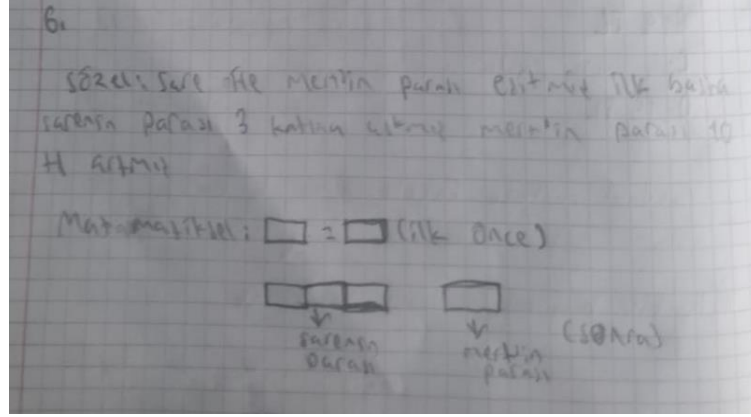 6.
Sözel: Sare ile Mert'in parası eşitmiş ilk başta
sarenin parası 3 katına çıkmış mert'in parası 10
tl artmış
Matematiksel: = (ilk önce)
(sonra)
sarenin mertin
parası parası